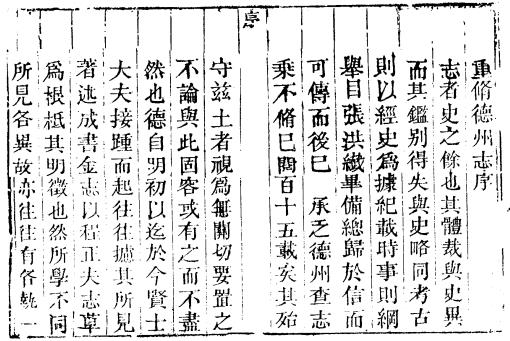 重脩德州志序
志者史之餘也其體裁與史異
而其鑑別得失與史略同考古
則以經史為據紀載時事則綱
舉目張洪纖畢備總歸於信而
可傳而後已 承乏德州查志
乘不脩已閱百十五載矣其殆
序
守兹土者視為無關切要置之
不論與此固容或有之而不盡
然也德自明初以迄於今賢士
大夫接踵而起往往攄其所見
著述成書金志以程正夫志草
為根柢其明徵也然所學不同
所見各異故亦往往有各執一